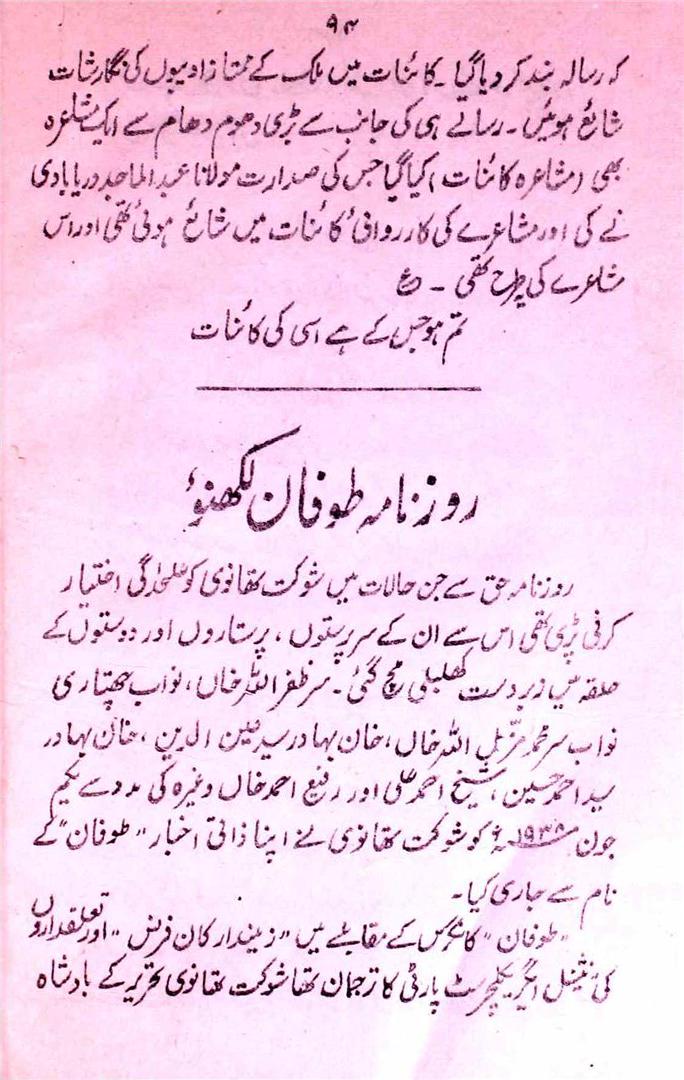 ۹۴
کہ رسالہ بند کر دیا گیا۔ کائنات میں ملک کے ممتاز ادیبوں کی نگارشات
شائع ہوئیں۔ رسالے ہی کی جانب سے بڑی دھوم دھام سے ایک مشاعرہ
بھی (مشاعرہ کائنات) کیا گیا جس کی صدارت مولانا عبدالماجد دریابادی
نے کی اور مشاعرے کی کارروائی کائنات میں شائع ہوئی تھی اور اس
مشاعرے کی طرح تھی ۔ ع
تم ہو جس کے ہے اسی کی کائنات
روزنامہ طوفان لکھنؤ
روزنامہ حق سے جن حالات میں شوکت تھانوی کو علحدگی اختیار
کرنی پڑی تھی اس سے ان کے سرپرستوں، پرستاروں اور دوستوں کے
حلقہ میں زبردست کھلبلی مچ گئی۔ سر ظفر اللہ خاں، نواب چھتاری
نواب سر محمد مزمل اللہ خاں، خان بہادر سید عین الدین، خان بہادر
سید احمد حسین، شیخ احمد علی اور رفیع احمد خاں وغیرہ کی مدد سے یکم
جون ۱۹۳۸ء کو شوکت تھانوی نے اپنا ذاتی اخبار "طوفان" کے
نام سے جاری کیا۔
"طوفان" کانگرس کے مقابلے میں "زمیندار کان فرنس" اور تعلقداروں
کی نیشنل ایگریکلچرسٹ پارٹی کا ترجمان تھا شوکت تھانوی تحریر کے بادشاہ